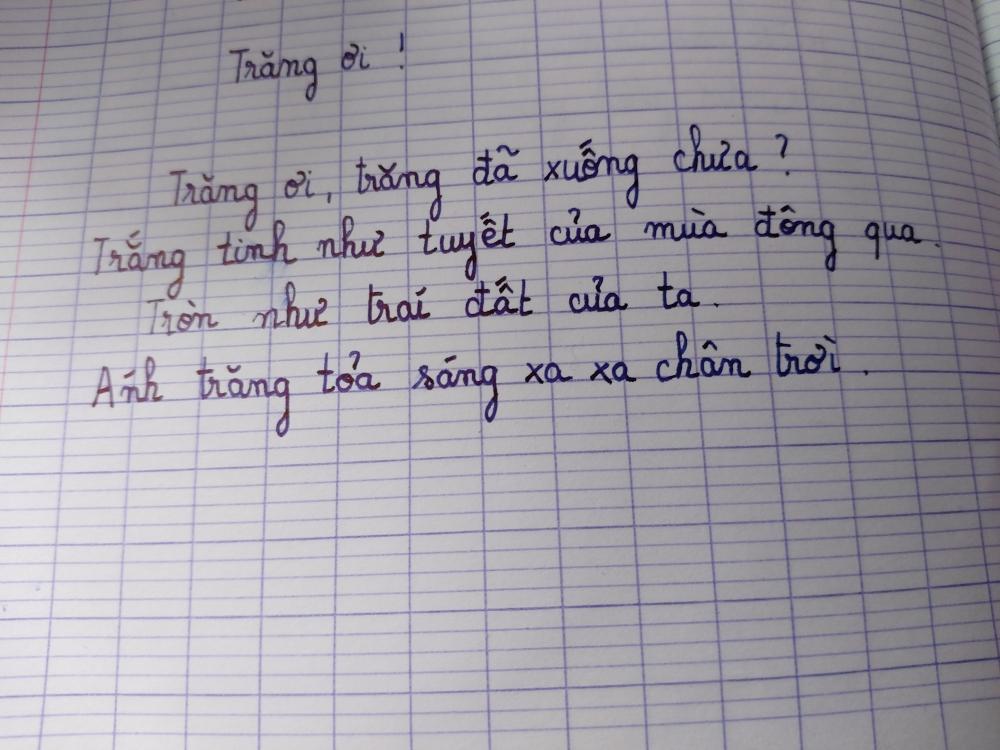 Trăng ơi !
Trăng ơi, trăng đã xuống chưa ?
Trắng tinh như tuyết của mùa đông qua.
Tròn như trái đất của ta.
Ánh trăng tỏa sáng xa xa chân trời.